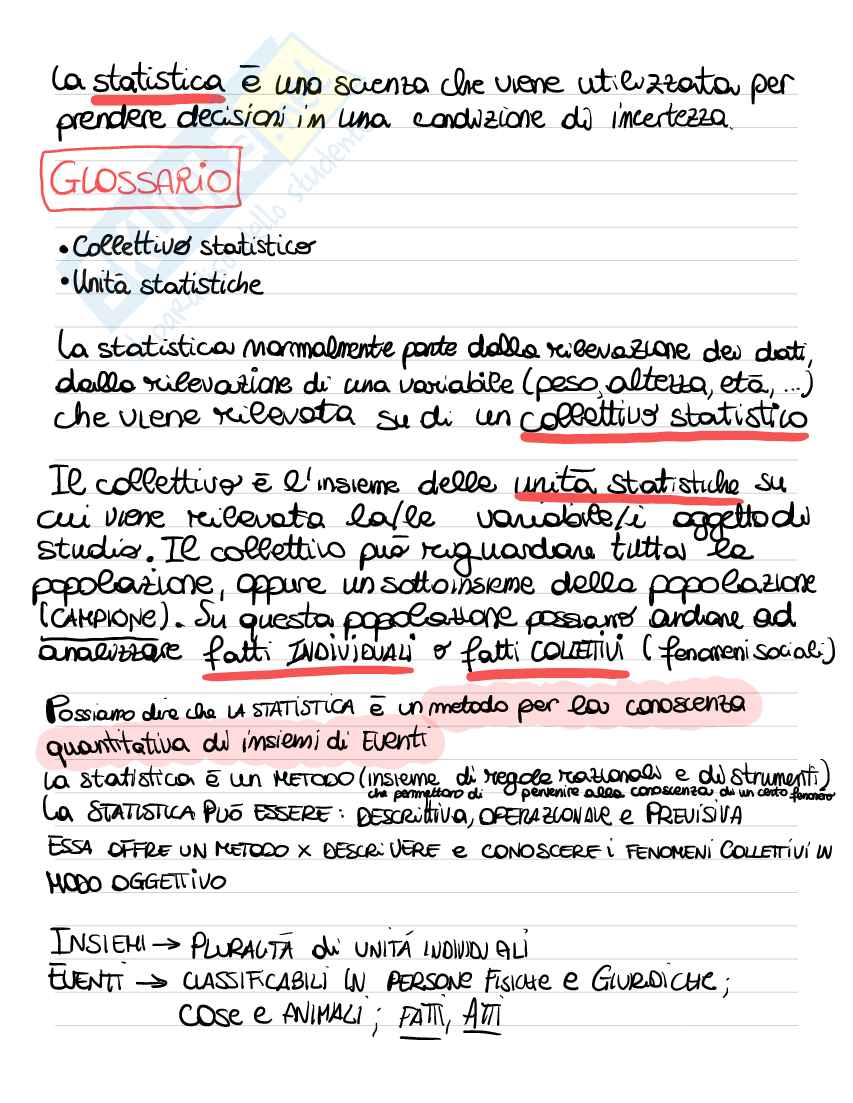 La statistica è una scienza che viene utilizzata per
prendere decisioni in una condizione di incertezza.
GLOSSARIO
• Collettivo statistico
• Unità statistiche
La statistica normalmente parte dalla rilevazione dei dati,
dalla rilevazione di una variabile (peso, altezza, età, ...)
che viene rilevata su di un collettivo statistico
Il collettivo è l'insieme delle unità statistiche su
cui viene rilevata la/le variabile/i oggetto di
studio. Il collettivo può riguardare tutta la
popolazione, oppure un sottoinsieme della popolazione
(CAMPIONE). Su questa popolazione possiamo andare ad
analizzare fatti INDIVIDUALI o fatti COLLETTIVI (fenomeni sociali)
Possiamo dire che LA STATISTICA è un metodo per la conoscenza
quantitativa di insiemi di Eventi
La statistica è un METODO (insieme di regole razionali e di strumenti)
che permettono di pervenire alla conoscenza di un certo fenomeno
La STATISTICA PUÒ ESSERE: DESCRITTIVA, OPERAZIONALE e PREVISIVA
ESSA OFFRE UN METODO x DESCRIVERE e CONOSCERE i FENOMENI COLLETTIVI IN
MODO OGGETTIVO
INSIEMI → PLURALITÀ di UNITÀ INDIVIDUALI
EVENTI → CLASSIFICABILI IN PERSONE FISICHE e GIURIDICHE;
COSE e ANIMALI; FATTI, ATTI